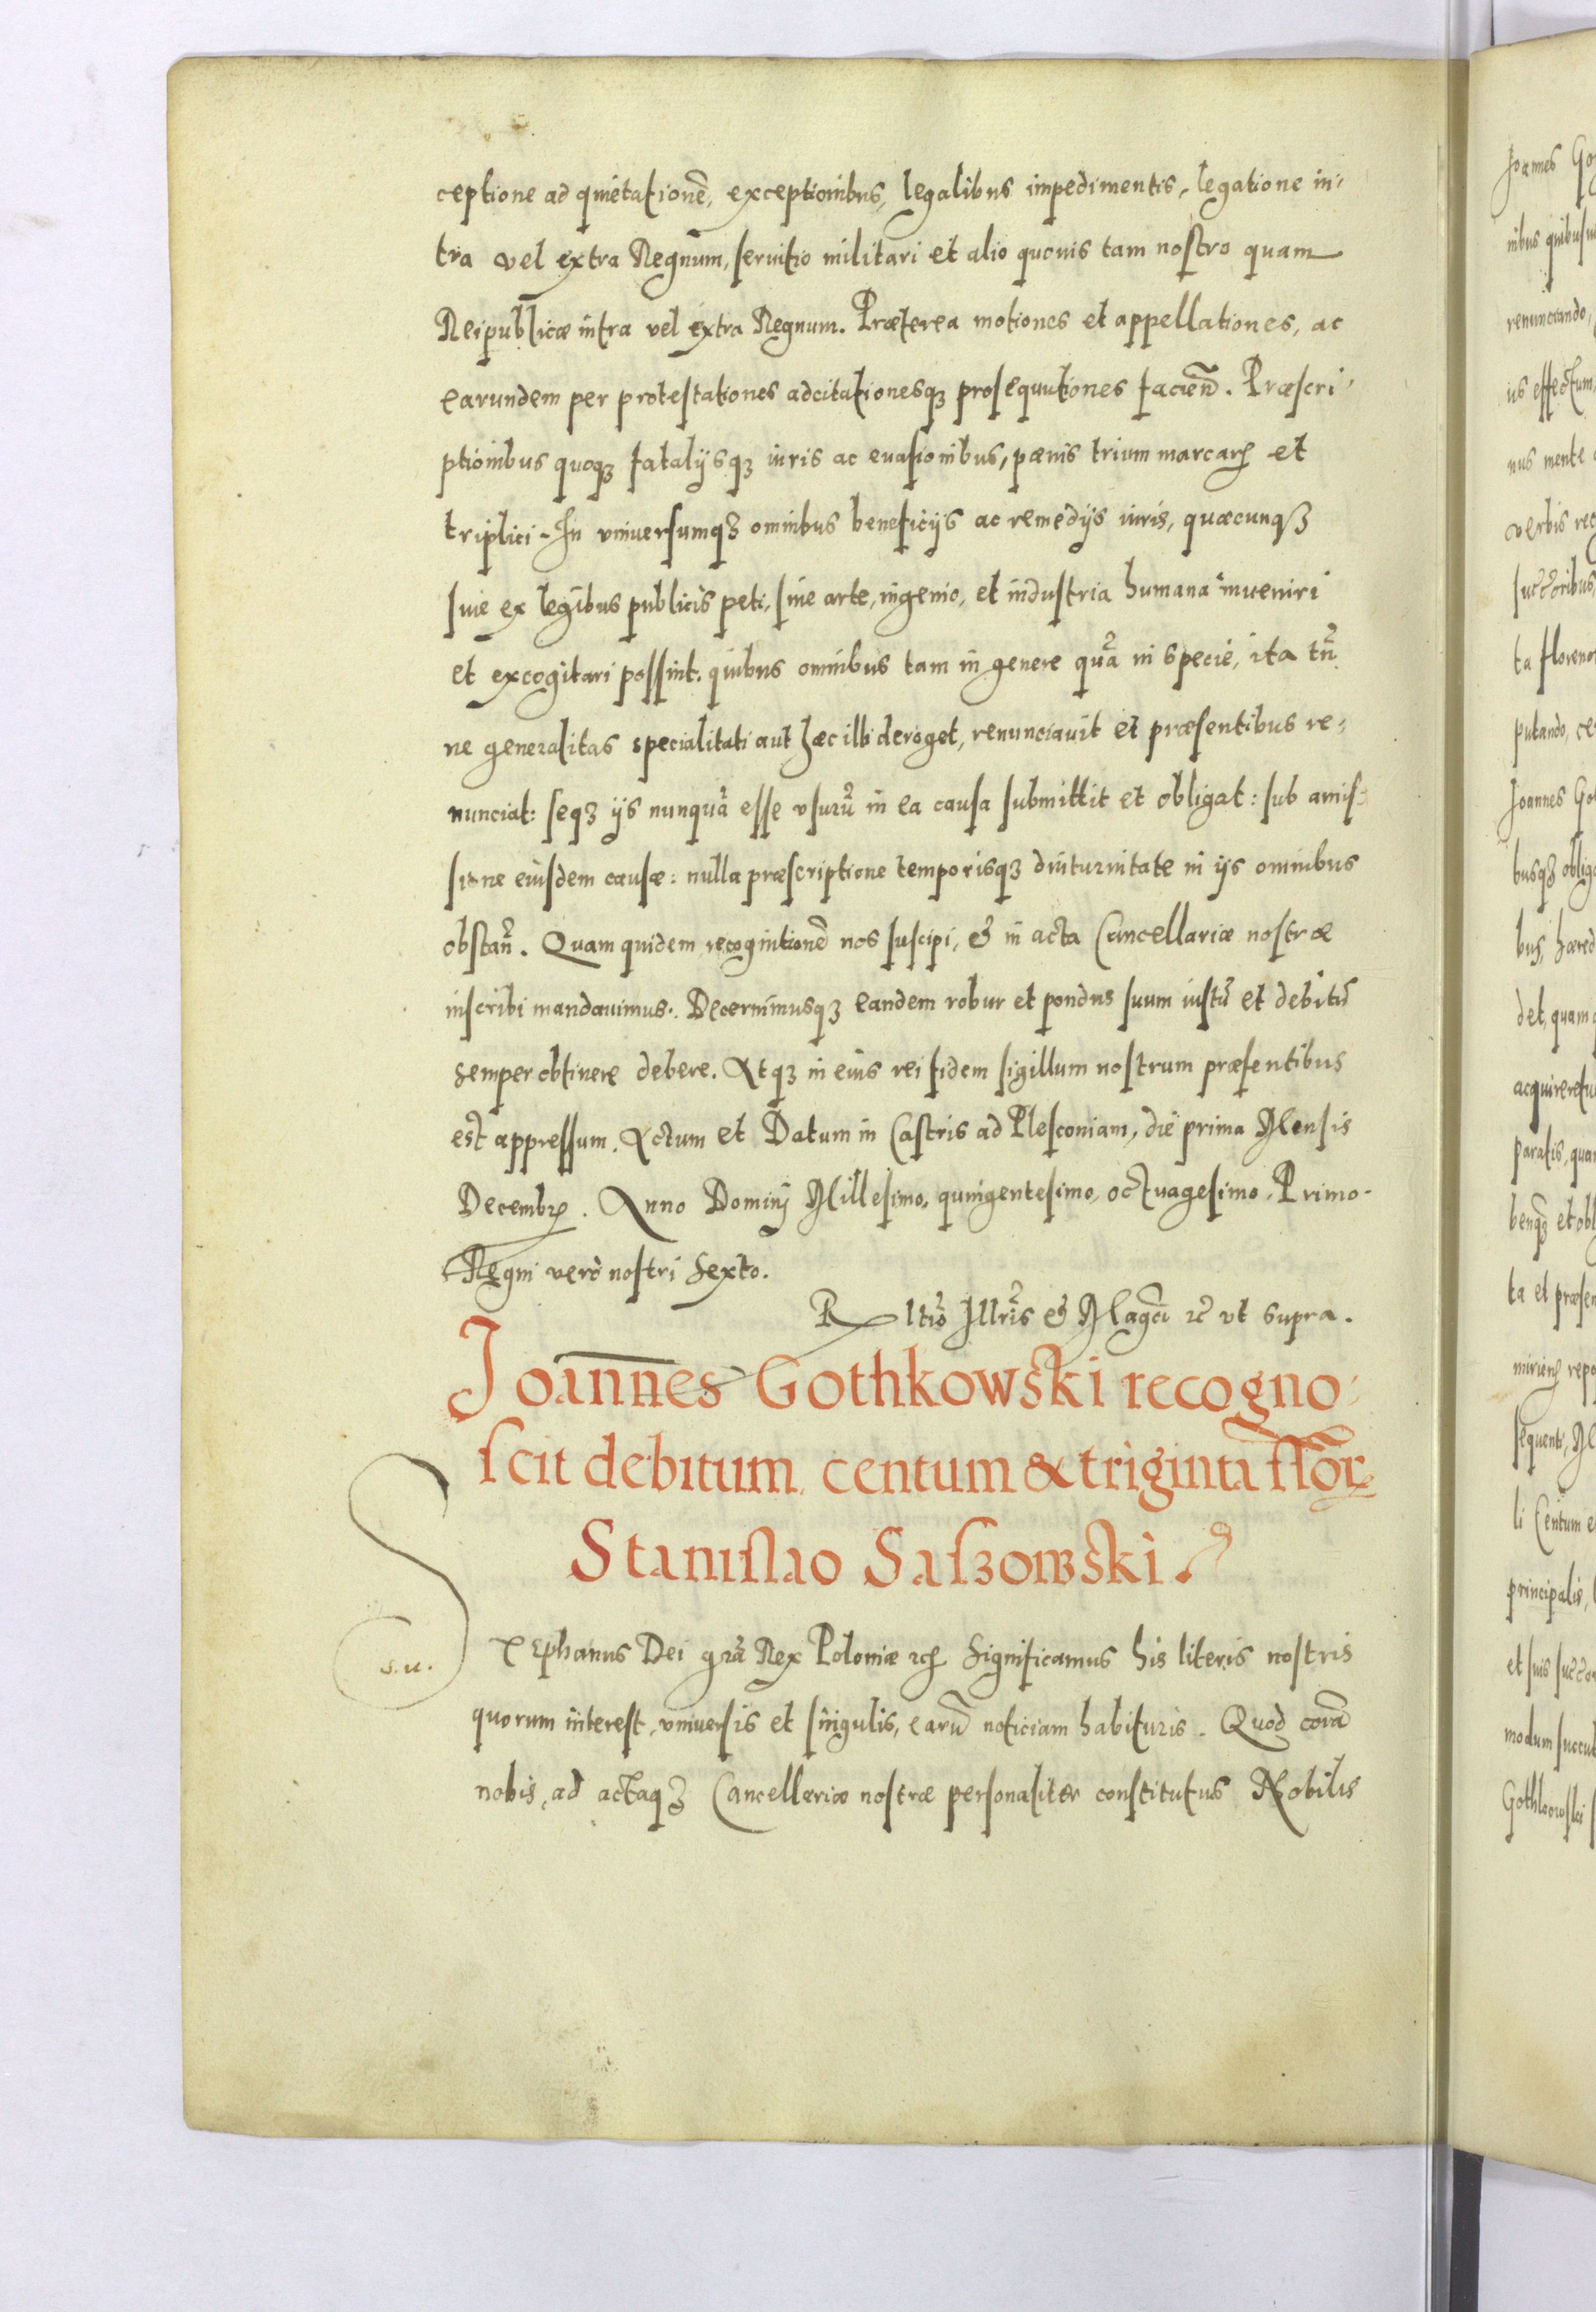 ceptione ad quietationē, exceptionibus, legalibus impedimentis, legatione in-
tra vel extra Regnum, seruitio militari et alio quouis tam nostro quam
Reipublicæ intra vel extra Regnum. Præterea motiones et appellationes, ac
earundem per protestationes adcitationesqꝫ prosequutiones facień. Præscri-
ptionibus quoqꝫ fatalijsqꝫ iuris ac euasionibus, pœnis trium marcarꝝ et
triplici. In vniuersumqꝫ omnibus beneficijs ac remedijs iuris, quæcunqꝫ
siue ex legibus publicis peti, siue arte, ingenio, et industria humana inueniri
et excogitari possint. quibus omnibus tam in genere quā in specie, ita tñ
ne generalitas specialitati aut hæc illi deroget, renunciauit et præsentibus re-
nunciat: seqꝫ ijs nunquā esse vsurū in ea causa submittit et obligat: sub amis-
sione eiusdem causæ: nulla præscriptione temporisqꝫ diuturnitate in ijs omnibus
obstañ. Quam quidem recognitionē nos suscipi, & in acta Cancellariæ nostræ
inscribi mandauimus. Decernimusqꝫ eandem robur et pondus suum iustū et debitū
semper obtinere debere. Atqꝫ in eius rei fidem sigillum nostrum præsentibus
est appressum. Actum et Datum in Castris ad Plesconiam, die prima Mensis
Decembrꝭ. Anno Dominj Millesimo, quingentesimo, octuagesimo, Primo.
Regni verò nostri Sexto.
Rltio Illris & Magci ꝛc vt supra.
Joannes Gothkowski recogno-
scit debitum centum & triginta flor
Stanislao Saszowski.
s.u.
Stephanus Dei gra Rex Poloniæ ꝛc Significamus his literis nostris
quorum interest, vniuersis et singulis, earū noticiam habituris. Quod corā
nobis, ad actaqꝫ Cancellariæ nostræ personaliter constitutus Nobilis
Joannes
renunciando,
us effectum,
nus mente
verbis
ta
putando,
Joannes
busqꝫ
bus,
det, quam
paratis,
et
ta et
sequenti,
li Centum
principalis,
et suis
modum
Gothkowski